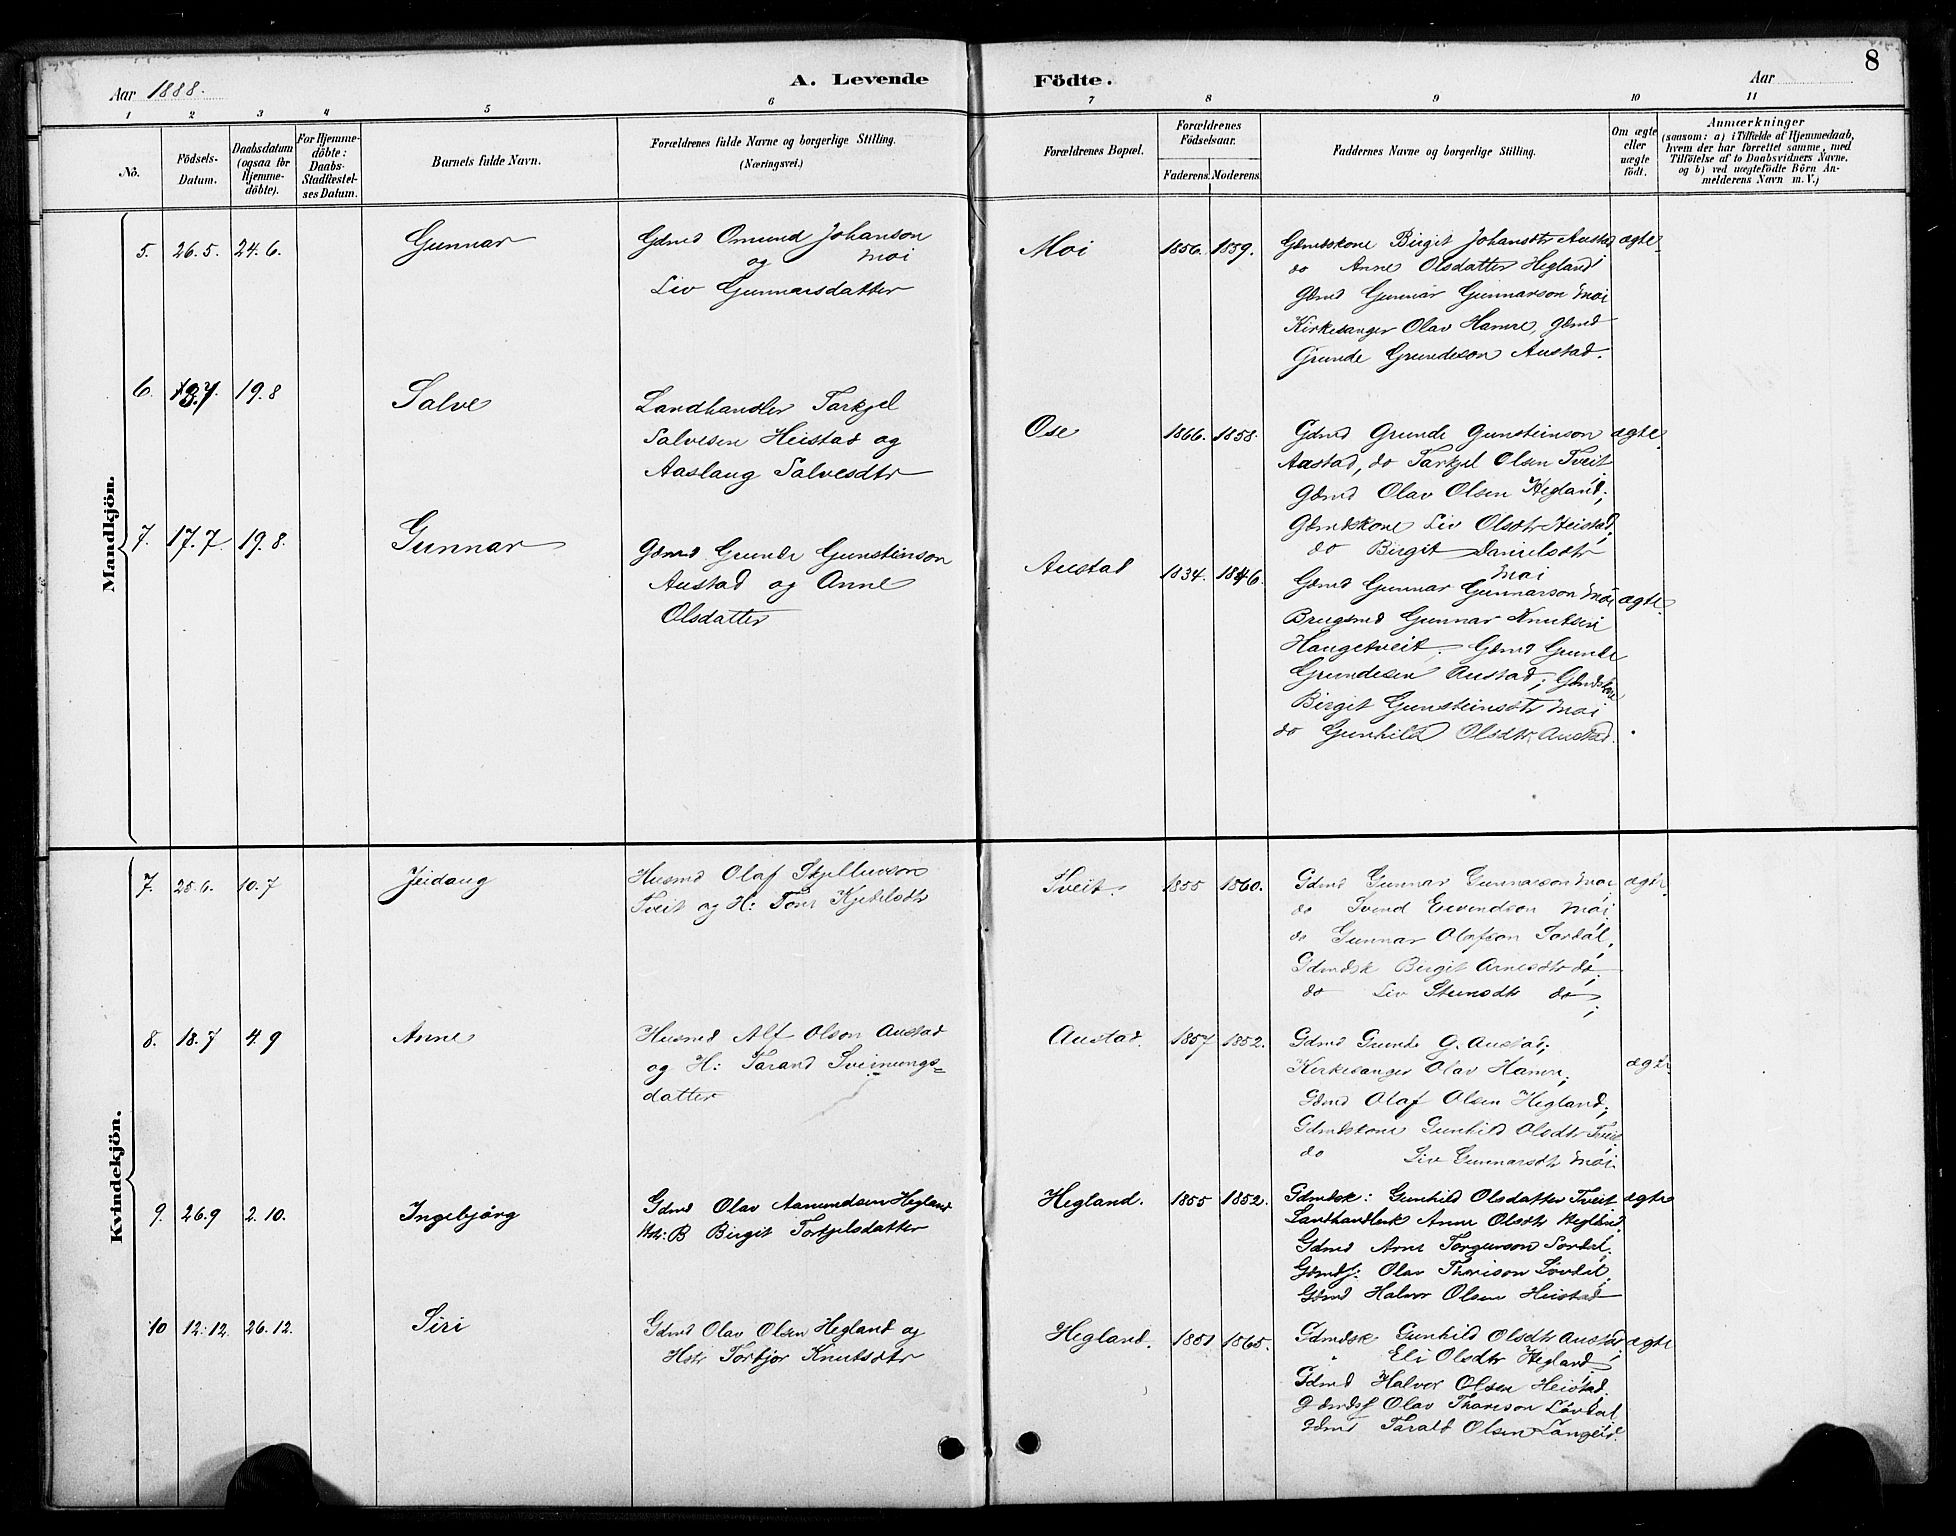 8
Aar 1888. A. Levende Födte. Aar
1 2 3 4 5 6 7 8 9 10 11
No.
Födsels-Datum.
Daabsdatum (ogsaa for Hjemme-döbte).
For Hjemme-döbte: Daabs-Stadfæstel-ses Datum.
Barnets fulde Navn.
Forældrenes fulde Navne og borgerlige Stilling.
(Næringsvei.)
Forældrenes Bopæl.
Forældrenes Födselsaar.
Faderens. Moderens.
Faddernes Navne og borgerlige Stilling.
Om ægte eller uægte födt.
Anmærkninger
(saasom: a) i Tilfælde af Hjemmedaab,
hvem der har forrettet samme, med
Tilföielse af to Daabsvidners Navne,
og b) ved uægtefödte Börn An-
melderens Navn m. V.)
Mandkjön.
5. 26.5. 24.6. Gunnar
Gdmd Omund Johanson
og Moi
Liv Gunnarsdatter
Moi 1856. 1859.
Gdmdskone Birgit Johansdtr Austad ægte
do Anne Olsdatter Hegland
Gdmd Gunnar Gunnarson Moi
Kirkesanger Olav Hamre, gdmd
Grunde Grundeson Austad.
6. 13.7. 19.8 Salve
Landhandler Tarkjel
Salvesen Heistad og
Aaslaug Salvesdtr
Ose 1866. 1858.
Gdmd Grunde Gunsteinson ægte
Austad, do Tarkjel Olsen Tveit
Gdmd Olav Olsen Hegland;
Gdmdskone Liv Olsdtr Heistad;
do Birgit Danielsdtr
Moi
7. 17.7. 19.8. Gunnar
Gdmd Grunde Gunsteinson
Austad og Anne
Olsdatter
Austad 1834. 1846.
Gdmd Gunnar Gunnarson Moi ægte
Brugsmd Gunnar Knutsen
Haugetveit. Gdmd Grunde
Grundesen Austad; Gdmdskone
Birgit Gunsteinsdtr Moi
do Gunhild Olsdtr Austad.
Kvindekjön.
7. 25.6. 10.7
Husmd Olaf
Tveit og H: Tone Kjetilsdtr
Tveit. 1855 1860.
Gdmd Gunnar Gunnarson Moi ægte
do Svend Eivindson Moi
do Gunnar Olafson Sordal,
Gdmdsk Birgit Arnesdtr do;
do Liv Steinsdtr do;
8. 18.7 4.9 Anne
Husmd Alf Olson Austad
og H: Tarand Sveinungs=
datter
Austad. 1857 1852.
Gdmd Grunde G. Austad;
Kirkesanger Olav Hamre; ægte
Gdmd Olaf Olsen Hegland;
Gdmdskone Gunhild Olsdtr Tveit
do Liv Gunnarsdtr Moi
9. 26.9 2.10. Ingebjörg
Gdmd Olav Aamundsen Hegland
Birgit Torkjelsdatter
Hegland. 1855 1852.
Gdmdsk: Gunhild Olsdatter Tveit ægte
Landhandlersk Anne Olsdtr Hegland,
Gdmd Arne Torgerson Sordal.
Olav Thorison Lövdal,
Gdmd Halvor Olsen Heistad
10 12.12. 26.12. Siri
Gdmd Olav Olsen Hegland og
Hstr Torbjor Knutsdtr
Hegland. 1851 1865.
Gdmdsk Gunhild Olsdtr Austad; ægte
" Eli Olsdtr Hegland
Gdmd Halvor Olsen Heistad.
Olav Thorison Lövdal
Gdmd Tarald Olsen Langeid.